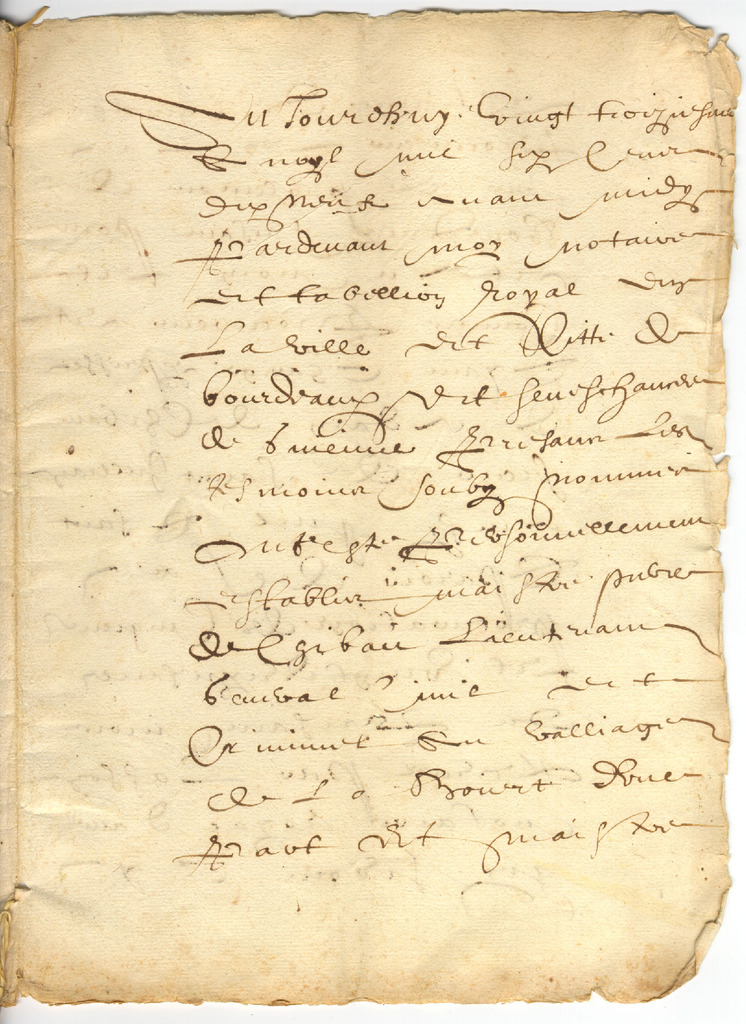 Au Jourdhuy vingt troiziesme
de may mil six cens
dix neuf avant midy
Pardevant moy notaire
et tabellion royal en
La ville et Citte de
bourdeaux et seneschaucee
de Guienne presans Les
tesmoins soubz nommes
Ont este personnellement
establis maistre pierre
de Lieutenant
General Civil et
Criminel au balliage
de La Bourt d'une
part et maistre